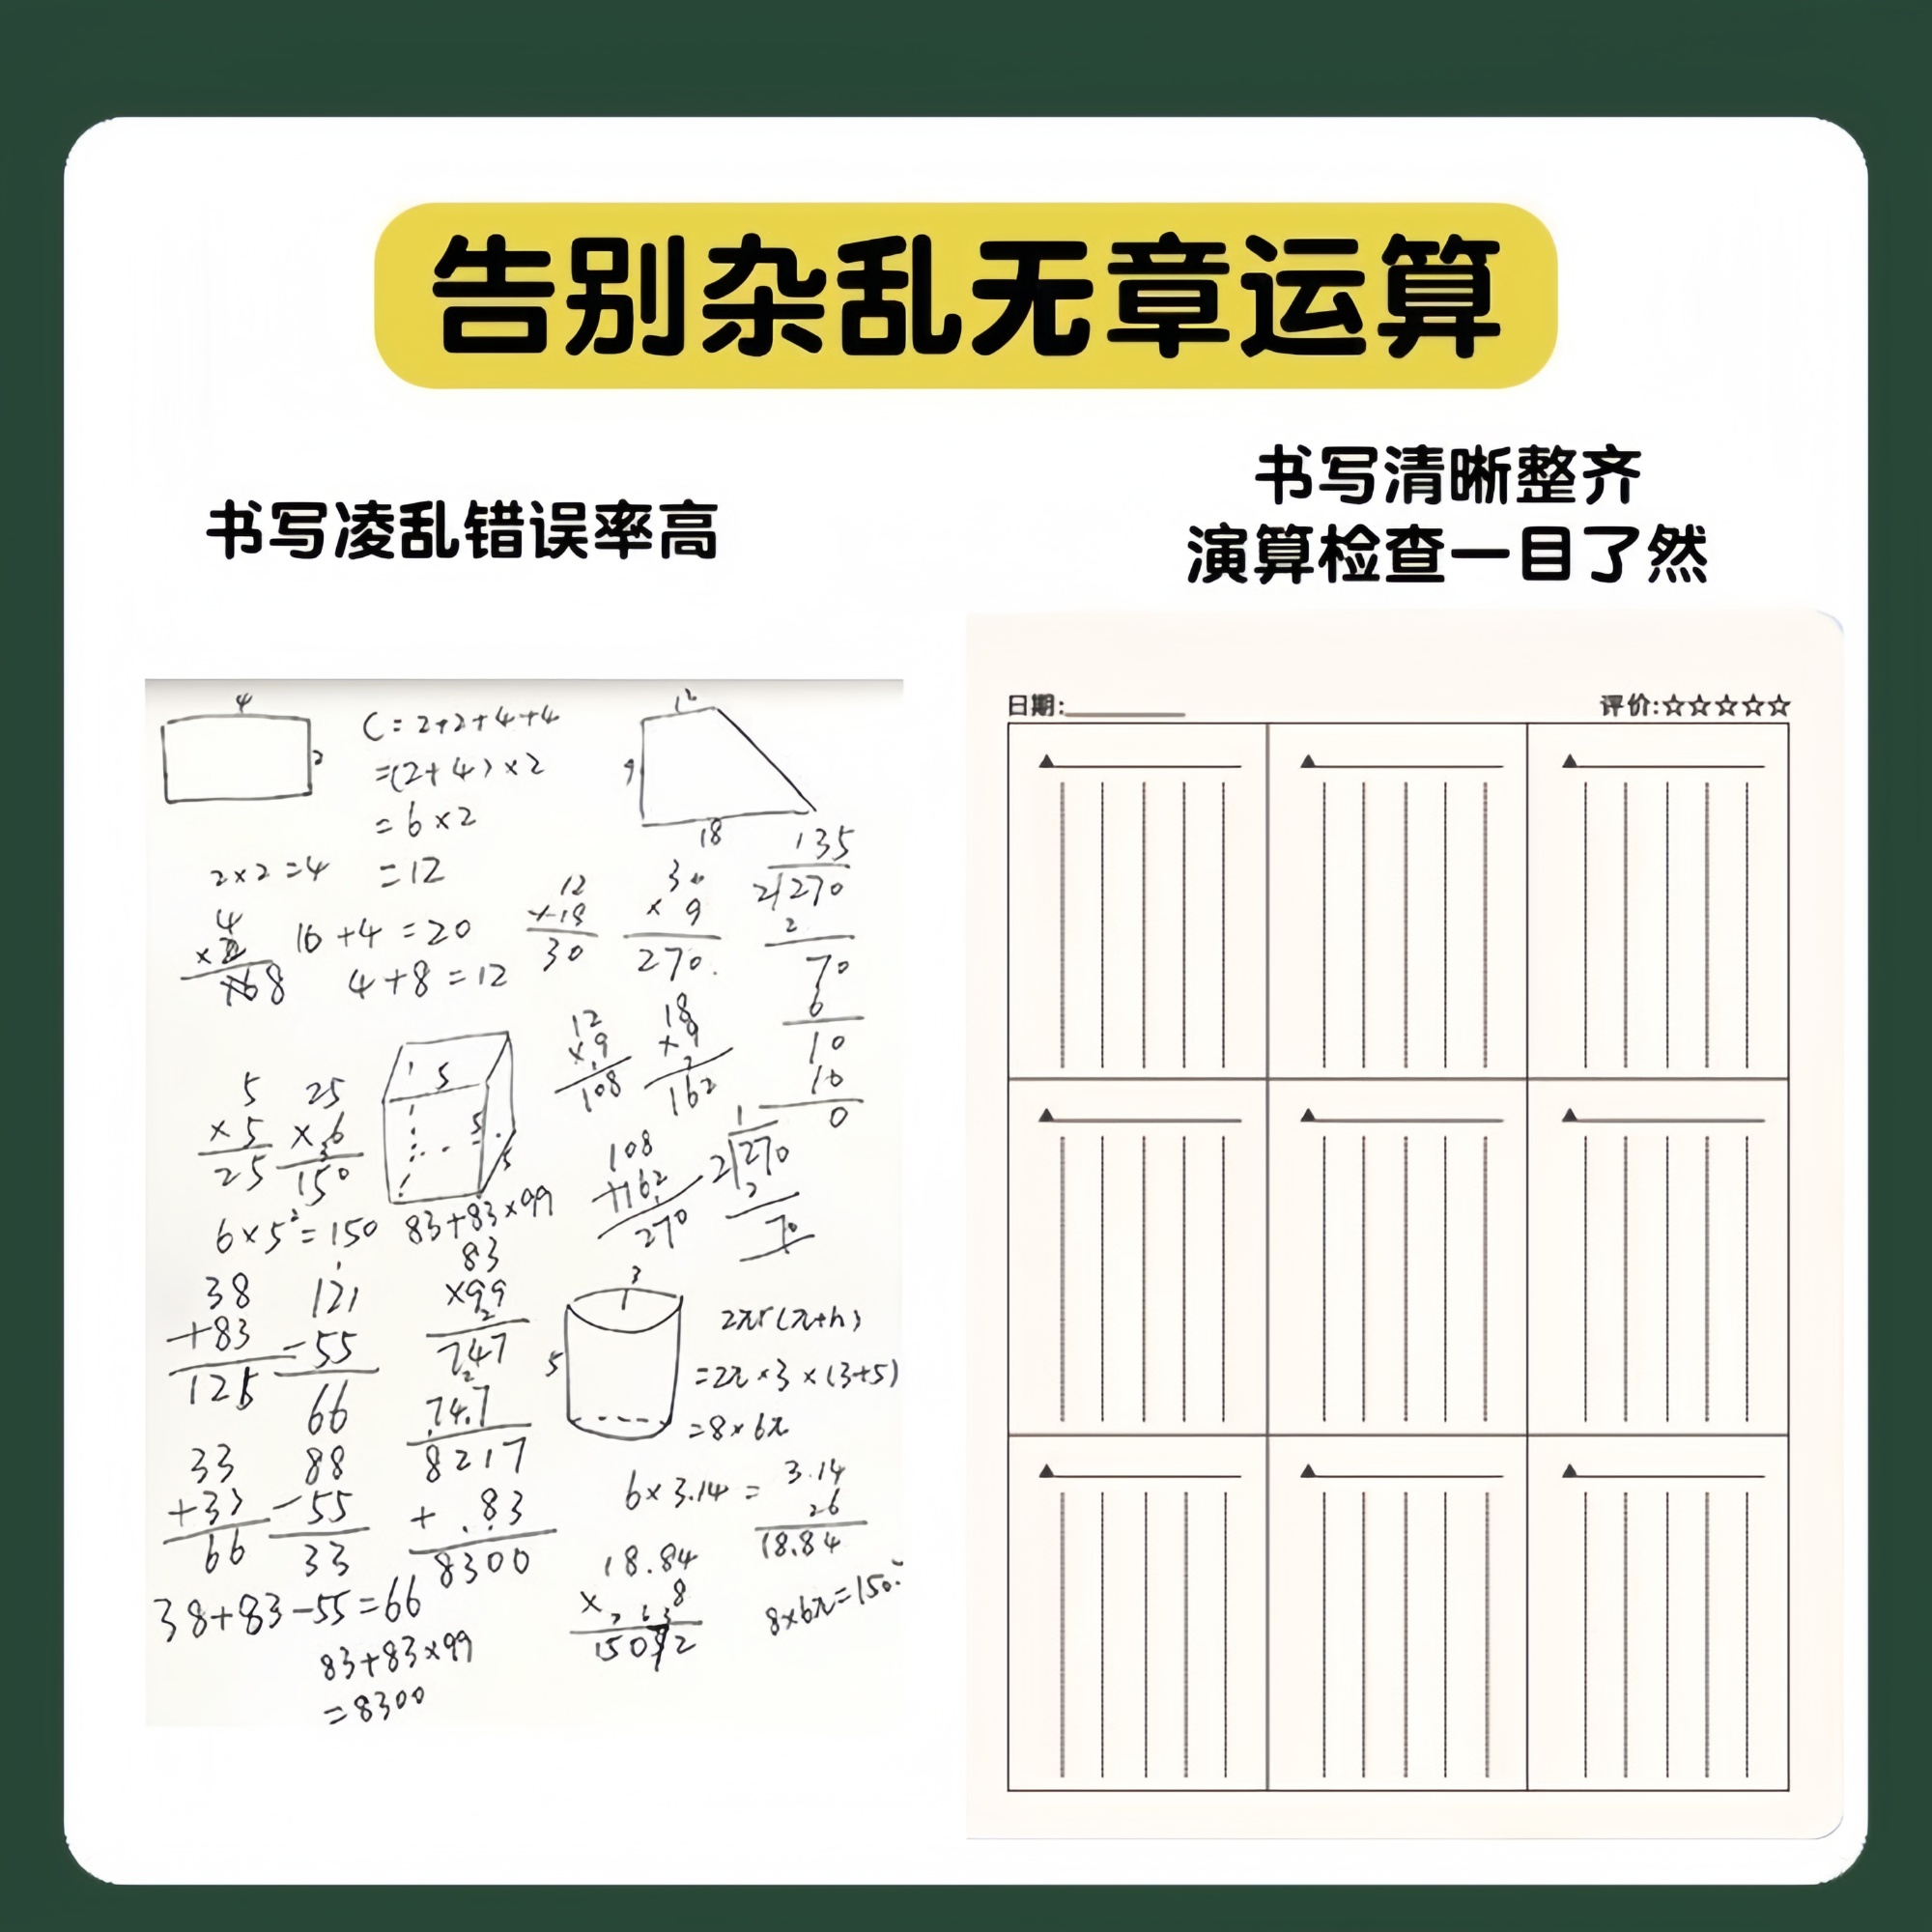 告别杂乱无章运算
书写凌乱错误率高
书写清晰整齐
演算检查一目了然
4
2
C=2+2+4+4
=(2+4)×2
=6×2
=12
12
9
18
2×2=4
4
×
8
16+4=20
4+8=12
12
+18
30
30
×9
270.
135
2)270
2
70
6
10
10
0
12
×9
108
18
×9
162
5
×5
25
25
×6
150
5
5
5
6×5²=150
83+83×99
108
+162
270
1
2)270
2
70
38
+83
121
-55
66
83
×99
747
747
8217
+83
8300
3
5
2πr(π+h)
=2π×3×(3+5)
=8×6π
33
+33
66
88
-55
33
6×3.14=
3.14
×6
18.84
38+83-55=66
18.84
×8
8×6π=150.
83+83×99
=8300
日期:
评价:☆☆☆☆☆